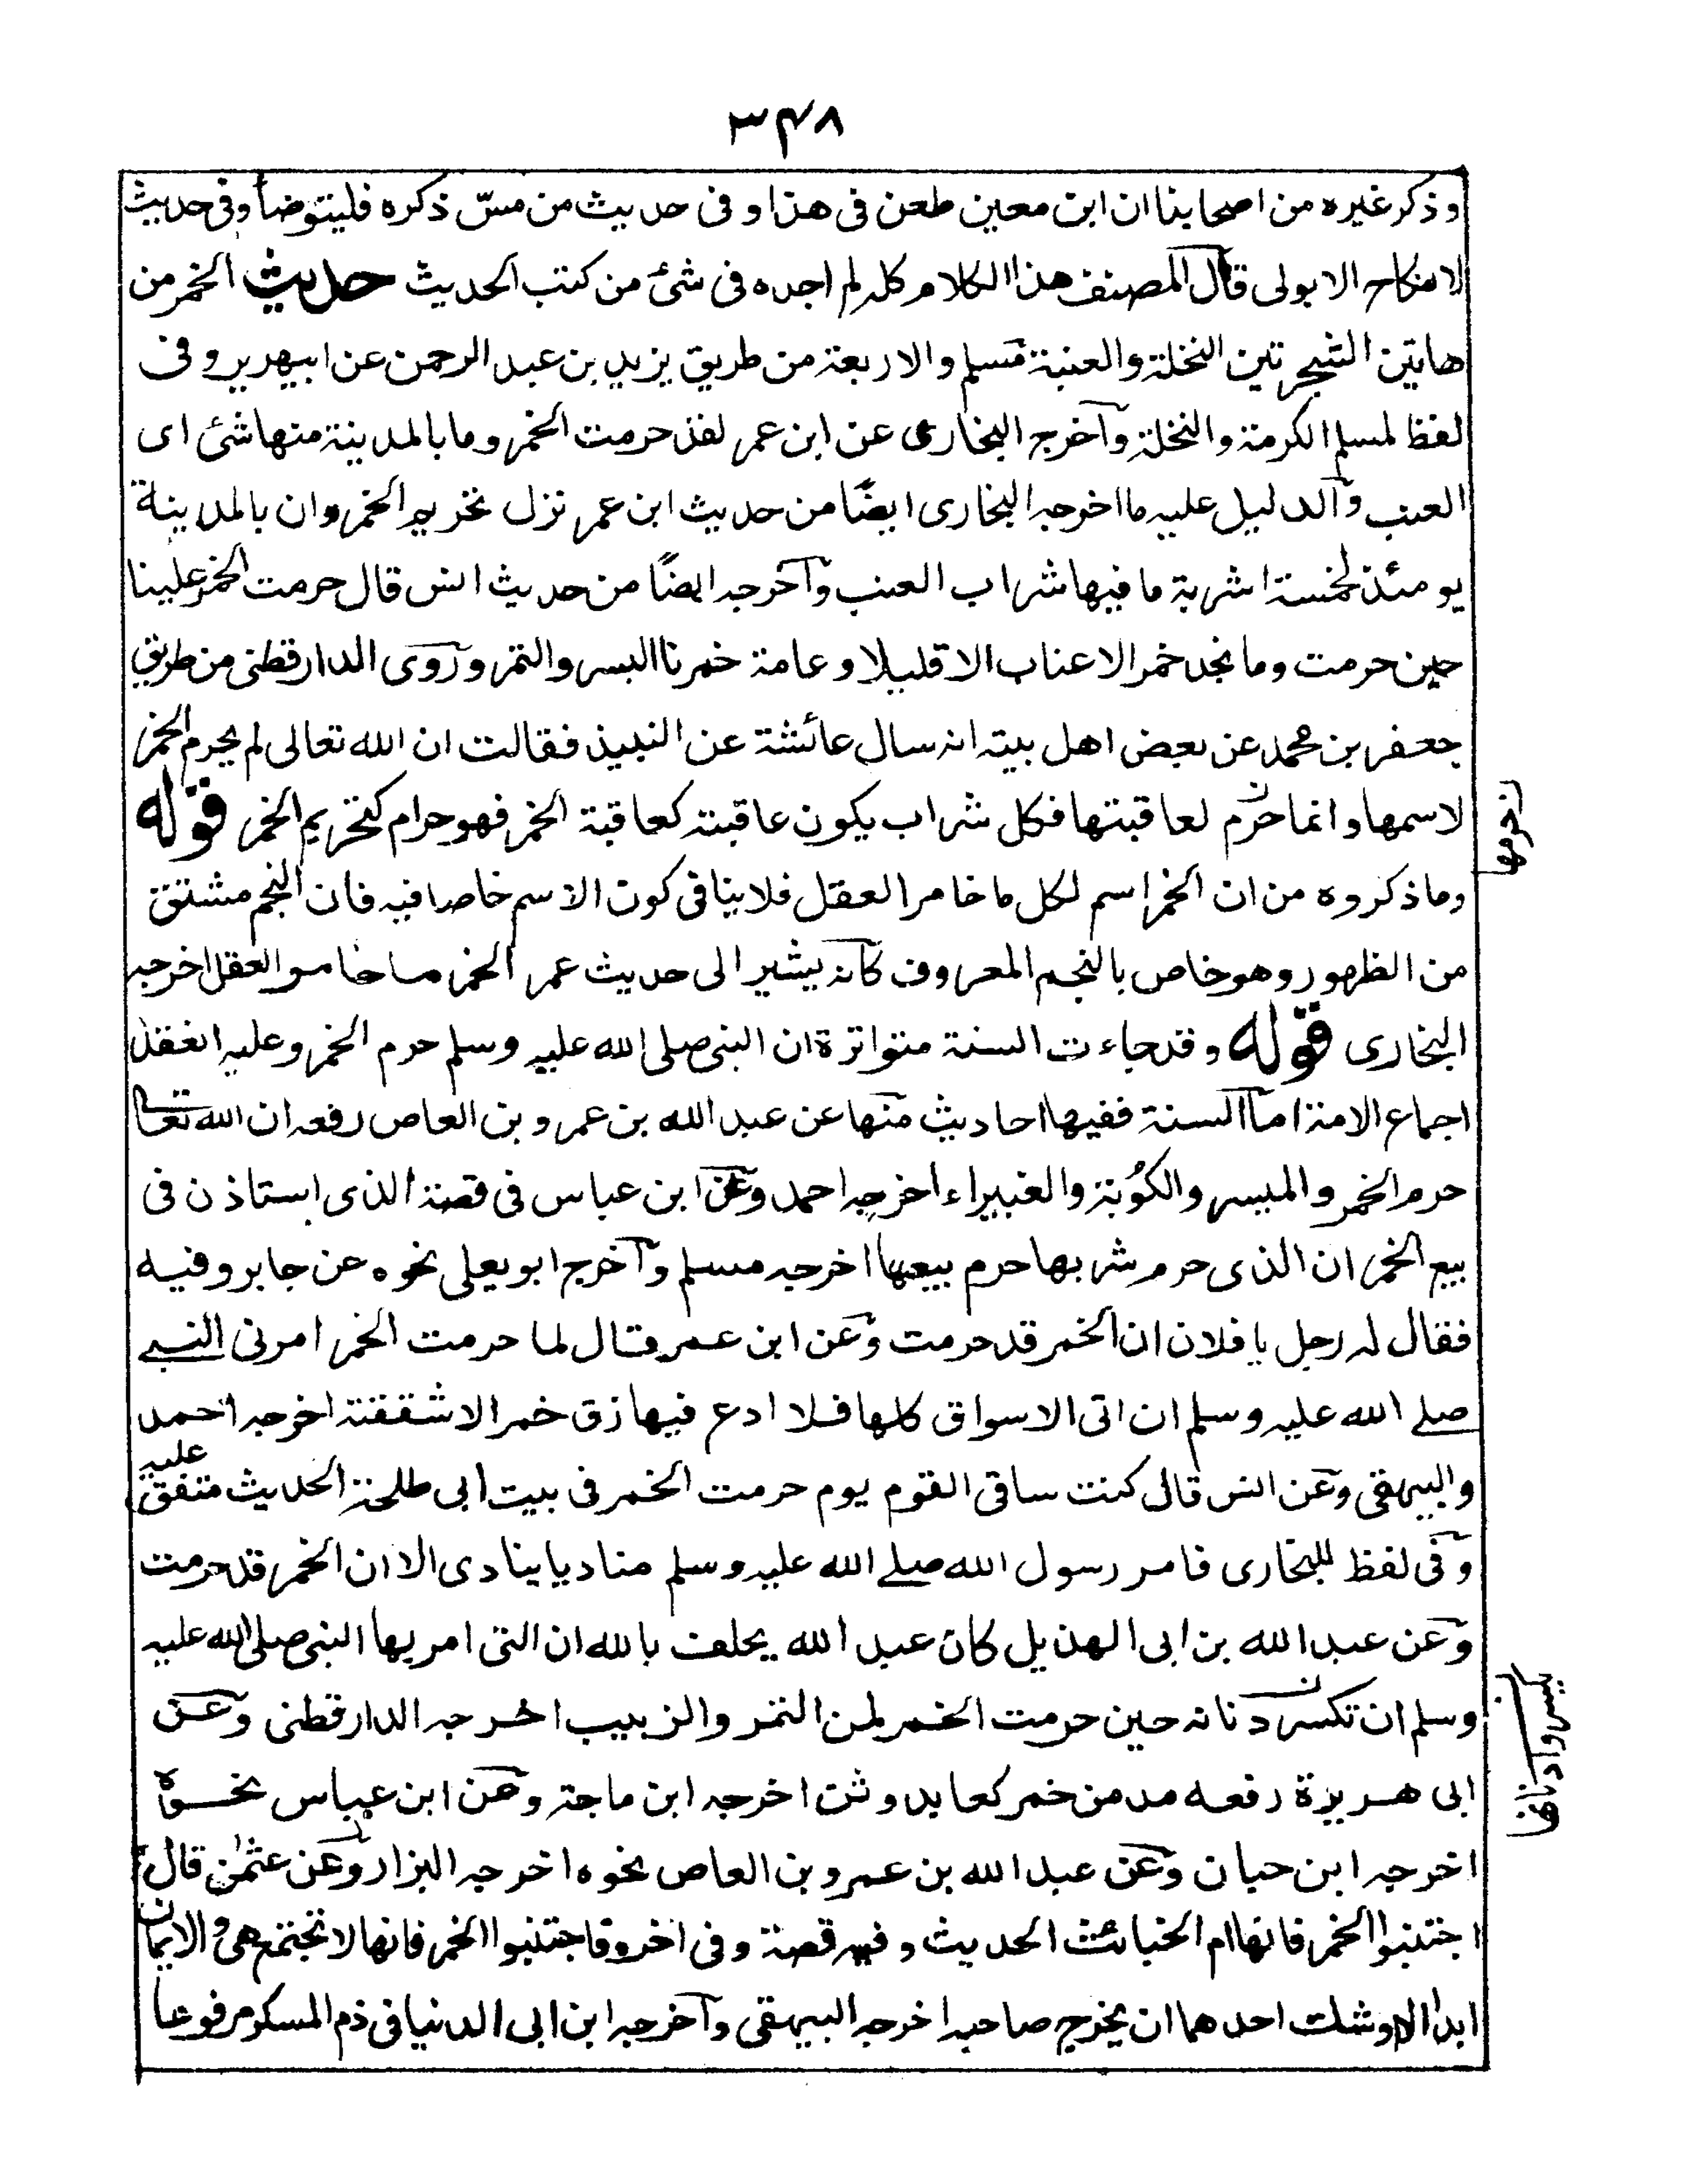 ۳۴۸
وذكر غيره من اصحابنا ان ابن معين طعن فى هذا و فى حديث من مسّ ذكره فليتوضأ وفى حديث
لا نكاح الا بولى قال المصنف هذا الكلام كله لم اجده فى شئ من كتب الحديث حديث الخمر من
هاتين الشجرتين النخلة والعنبة مسلم والاربعة من طريق يزيد بن عبد الرحمن عن ابيهرير وفى
لفظ لمسلم الكرمة والنخلة واخرج البخارى عن ابن عمر لقد حرمت الخمر وما بالمدينة منها شئ اى
العنب والدليل عليه ما اخرجه البخارى ايضًا من حديث ابن عمر نزل تحريم الخمر وان بالمدينة
يومئذ لخمسة اشربة ما فيها شراب العنب واخرجه ايضًا من حديث انس قال حرمت الخمر علينا
حين حرمت وما نجد خمر الاعناب الا قليلا وعامة خمرنا البسر والتمر وروى الدارقطنى من طريق
جعفر بن محمد عن بعض اهل بيته انه سال عائشة عن النبيذ فقالت ان الله تعالى لم يحرم الخمر
لاسمها وانما حرم لعاقبتها فكل شراب يكون عاقبته كعاقبة الخمر فهو حرام كتحريم الخمر قوله
حرمها
وما ذكروه من ان الخمر اسم لكل ما خامر العقل فلا ينافى كون الاسم خاصا فيه فان النجم مشتق
من الظهور وهو خاص بالنجم المعروف كانه يشير الى حديث عمر الخمر ما خامر العقل اخرجه
البخارى قوله وقد جاءت السنة متواترة ان النبى صلى الله عليه وسلم حرم الخمر وعليه انعقد
اجماع الامة اما السنة ففيها احاديث منها عن عبد الله بن عمرو بن العاص رفعه ان الله تعا
حرم الخمر والميسر والكُوبة والغبيراء اخرجه احمد وعن ابن عباس فى قصة الذى استاذن فى
بيع الخمر ان الذى حرم شربها حرم بيعها اخرجه مسلم واخرج ابو يعلى نحوه عن جابر وفيه
فقال له رجل يا فلان ان الخمر قد حرمت وعن ابن عمر قال لما حرمت الخمر امرنى النبے
صلے الله عليه وسلم ان اتى الاسواق كلها فلا ادع فيها زق خمر الا شققته اخرجه احمد
والبيهقى وعن انس قال كنت ساقى القوم يوم حرمت الخمر فى بيت ابى طلحة الحديث متفق عليه
وفى لفظ للبخارى فامر رسول الله صلے الله عليه وسلم مناديا ينادى الا ان الخمر قد حرمت
وعن عبد الله بن ابى الهذيل كان عبد الله يحلف بالله ان التى امر بها النبى صلى الله عليه
وسلم ان تكسر دنانه حين حرمت الخمر لمن التمر والزبيب اخرجه الدارقطنى وعن
ابى هريرة رفعه مدمن خمر كعابد وثن اخرجه ابن ماجة وعن ابن عباس نحوه
اخرجه ابن حبان وعن عبد الله بن عمرو بن العاص نحوه اخرجه البزار وعن عثمٰن قال
اجتنبوا الخمر فانها ام الخبائث الحديث وفيه قصة وفى اخره فاجتنبوا الخمر فانها لا تجتمع هى والايمان
ابدا الا وشك احدهما ان يخرج صاحبه اخرجه البيهقى واخرجه ابن ابى الدنيا فى ذم المسكر مرفوعا